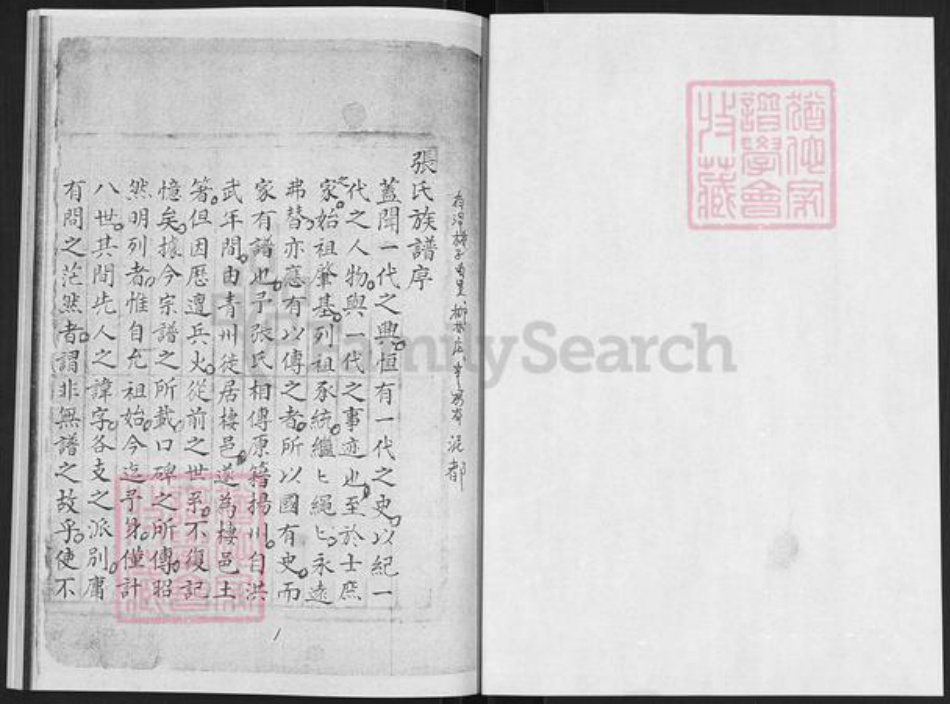 張氏族譜序
蓋聞一代之興恒有一代之史以紀一
代之人物與一代之事迹也至於士庶
之家始祖肇基列祖承統繼〻繩〻永遠
弗替亦應有以傳之者所以國有史而
家有譜也予張氏相傳原籍揚州自洪
武年間由青州徙居棲邑遂為棲邑土
著但因歷遭兵火從前之世系不復記
憶矣據今宗譜之所載口碑之所傳昭
然明列者惟自允祖始今迄予身僅計
八世其間先人之諱字各支之派別庸
有問之茫然者謂非無譜之故乎使不
1
FamilySearch